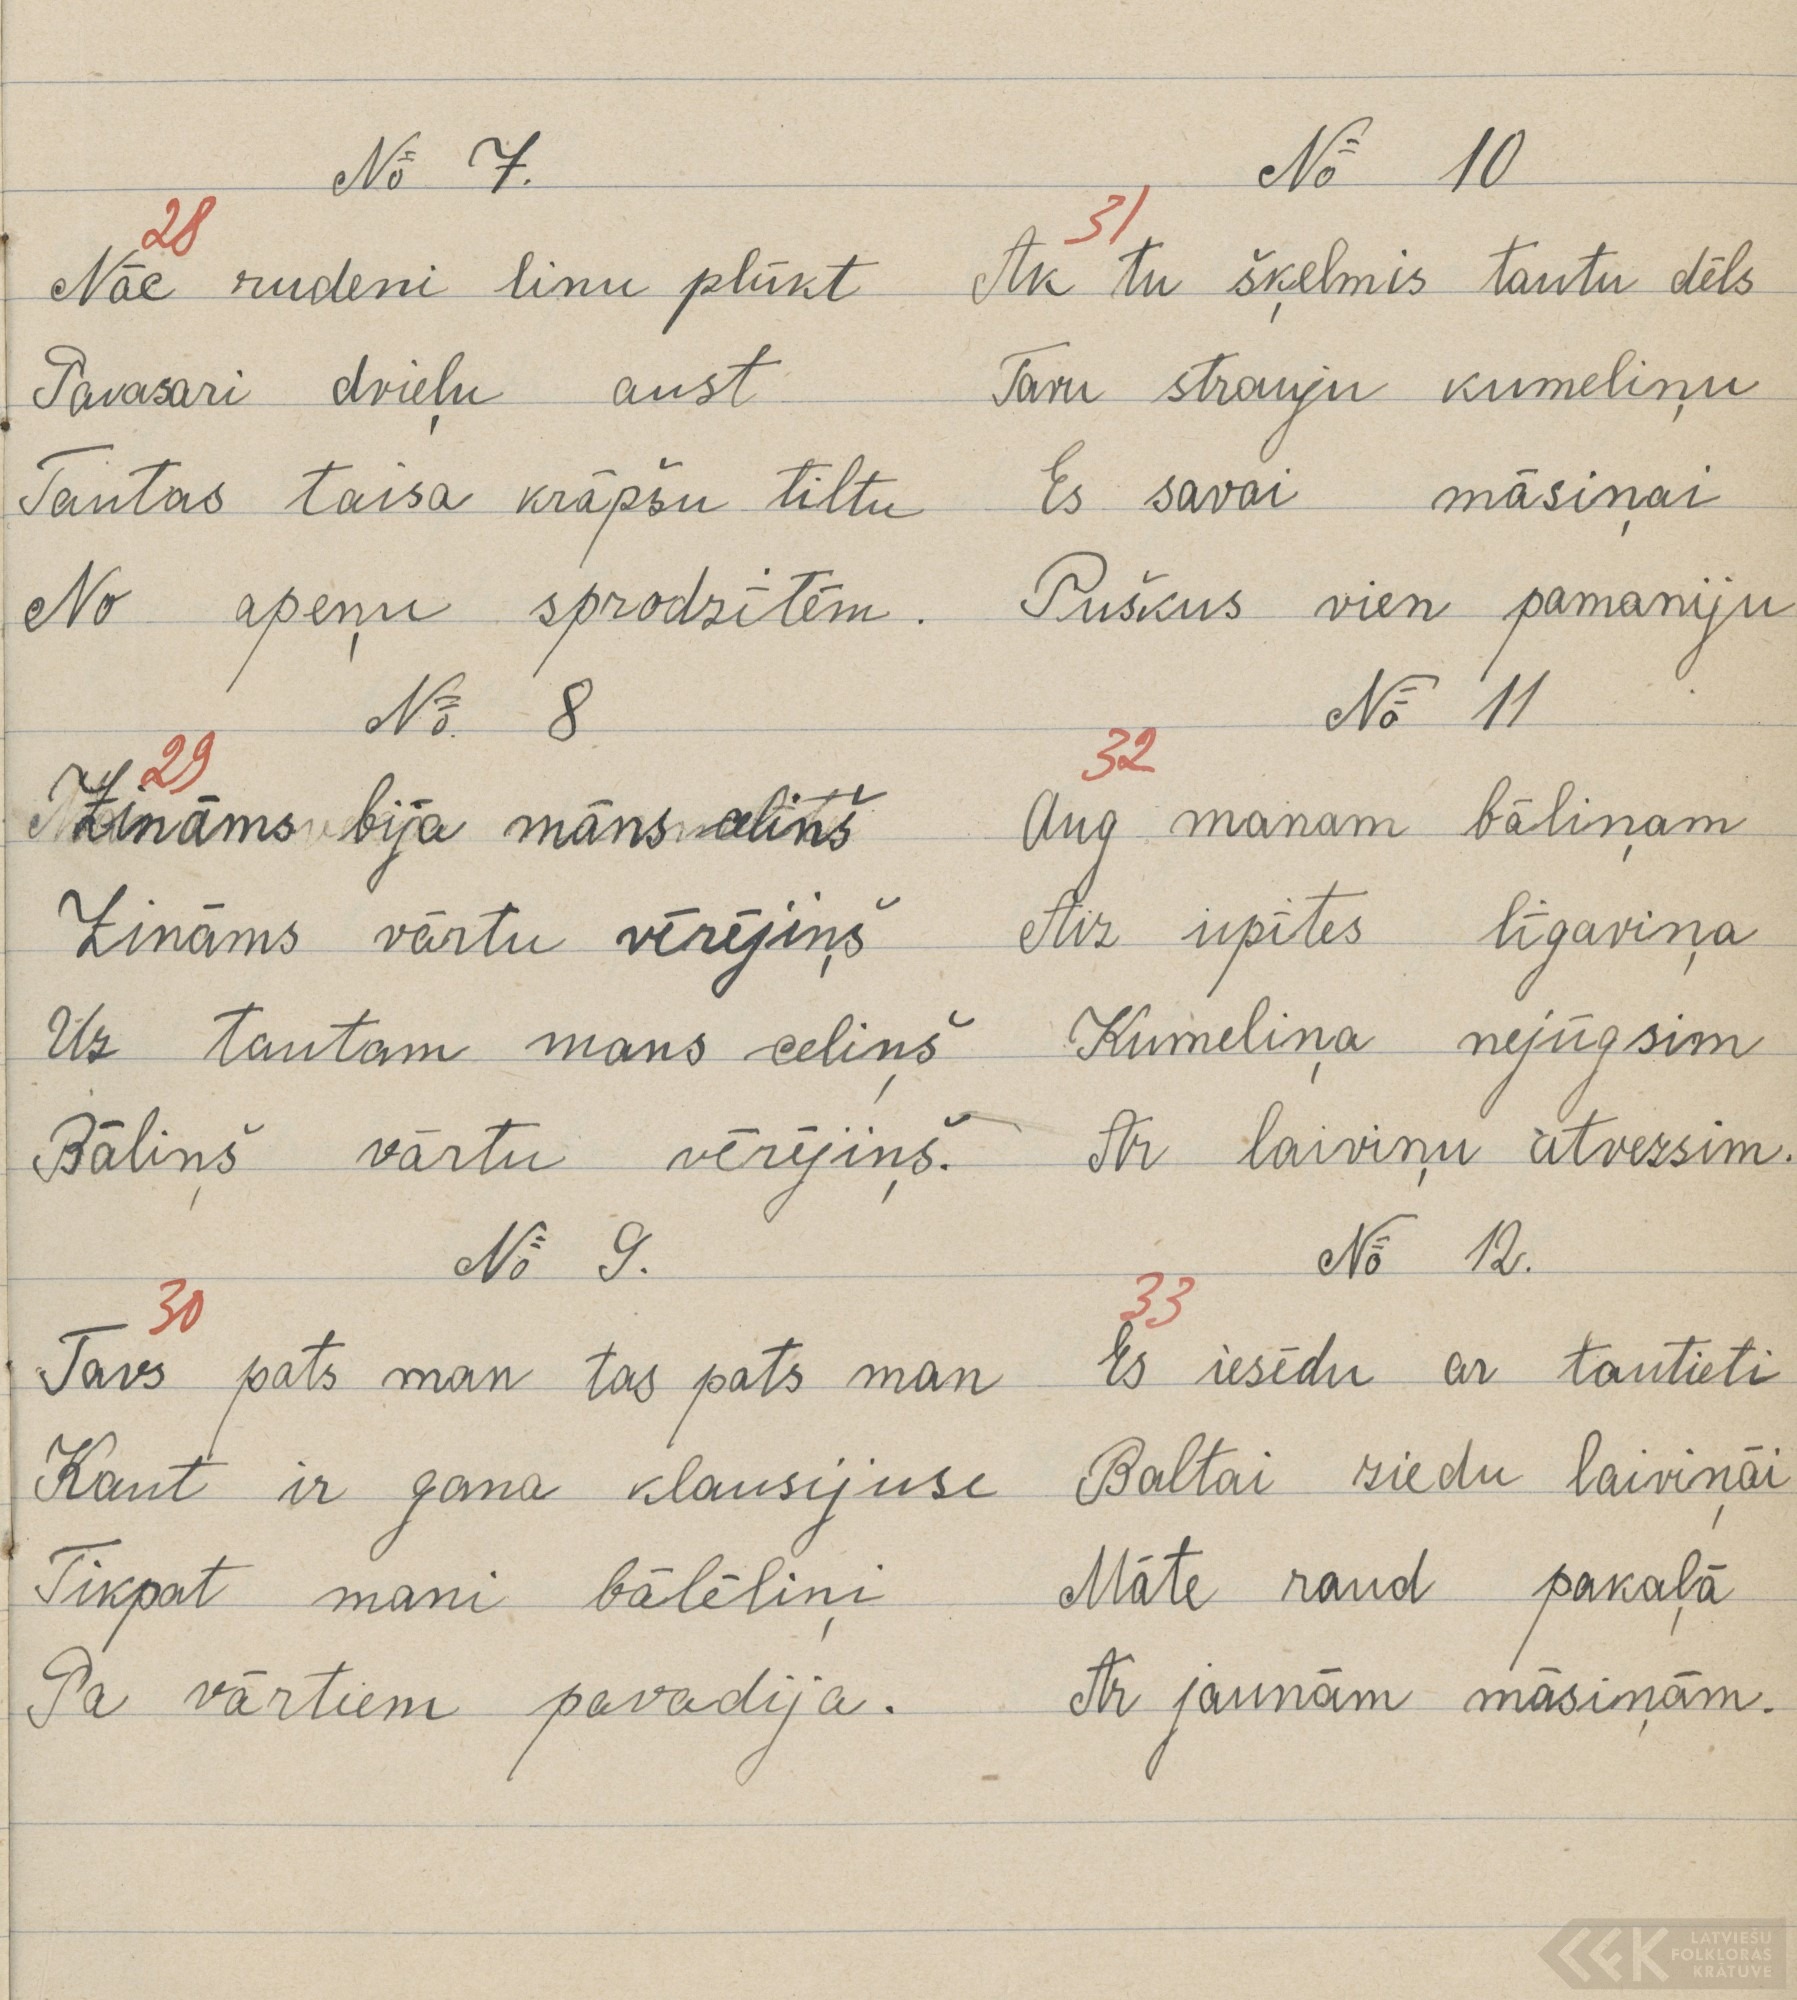 No 7.
28
Nāc rudeni linu plūkt
Pavasari dvieļu aust
Tautas taisa krāpšu tiltu
No apeņu sprodzītēm.
No. 8
29
Zināms bija māns celiņš
Zināms vārtu vērējiņš
Uz tautam mans celiņš
Bāliņš vārtu vērējiņš.
No 9.
30
Tavs pats man tas pats man
Kaut ir gana klausijuse
Tikpat mani bālēliņi
Pa vārtiem pavadija.
No 10
31
Ak tu šķelmis tautu dēls
Tavu strauju kumeliņu
Es savai māsiņai
Puškus vien pamaniju
No 11
32
Aug manam bāliņam
Aiz upītes līgaviņa
Kumeliņa nejūgsim
Ar laiviņu atvezsim.
No 12.
33
Es iesēdu ar tautieti
Baltai ziedu laiviņāi
Māte raud pakaļā
Ar jaunām māsiņām.
LATVIEŠU
FOLKLORAS
KRĀTUVE